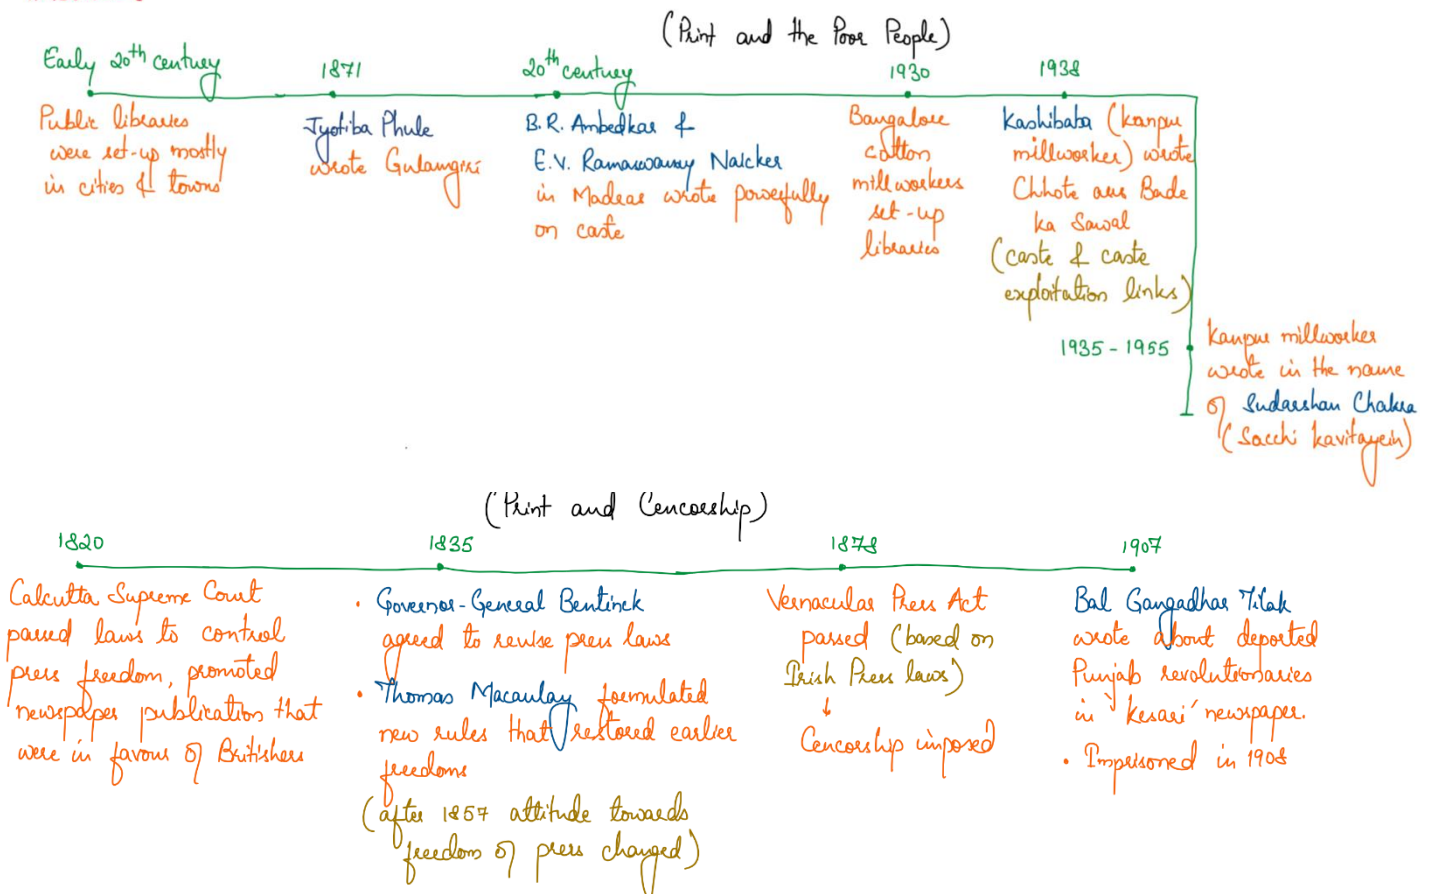 (Print and the Poor People)
Early 20th century
Public libraries
were set-up mostly
in cities & towns
1871
Jyotiba Phule
wrote Gulamgiri
20th century
B.R. Ambedkar &
E.V. Ramaswamy Naicker
in Madras wrote powerfully
on caste
1930
Bangalore
cotton
millworkers
set-up
libraries
1938
Kashibaba (Kanpur
millworker) wrote
Chhote aur Bade
ka Sawal
(caste & caste
exploitation links)
1935 - 1955
Kanpur millworker
wrote in the name
of Sudarshan Chakra
(Sacchi Kavitayein)
(Print and Cencorship)
1820
Calcutta Supreme Court
passed laws to control
press freedom, promoted
newspaper publication that
were in favour of Britishers
1835
• Governor-General Bentinck
agreed to revise press laws
• Thomas Macaulay formulated
new rules that restored earlier
freedoms
(after 1857 attitude towards
freedom of press changed)
1878
Vernacular Press Act
passed (based on
Irish Press laws)
↓
Cencorship imposed
1907
Bal Gangadhar Tilak
wrote about deported
Punjab revolutionaries
in 'Kesari' newspaper.
• Imprisoned in 1908